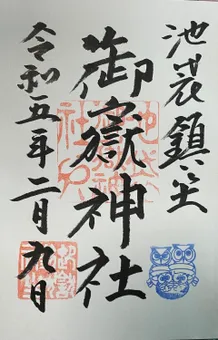 池袋鎮座
御嶽神社
令和五年二月九日